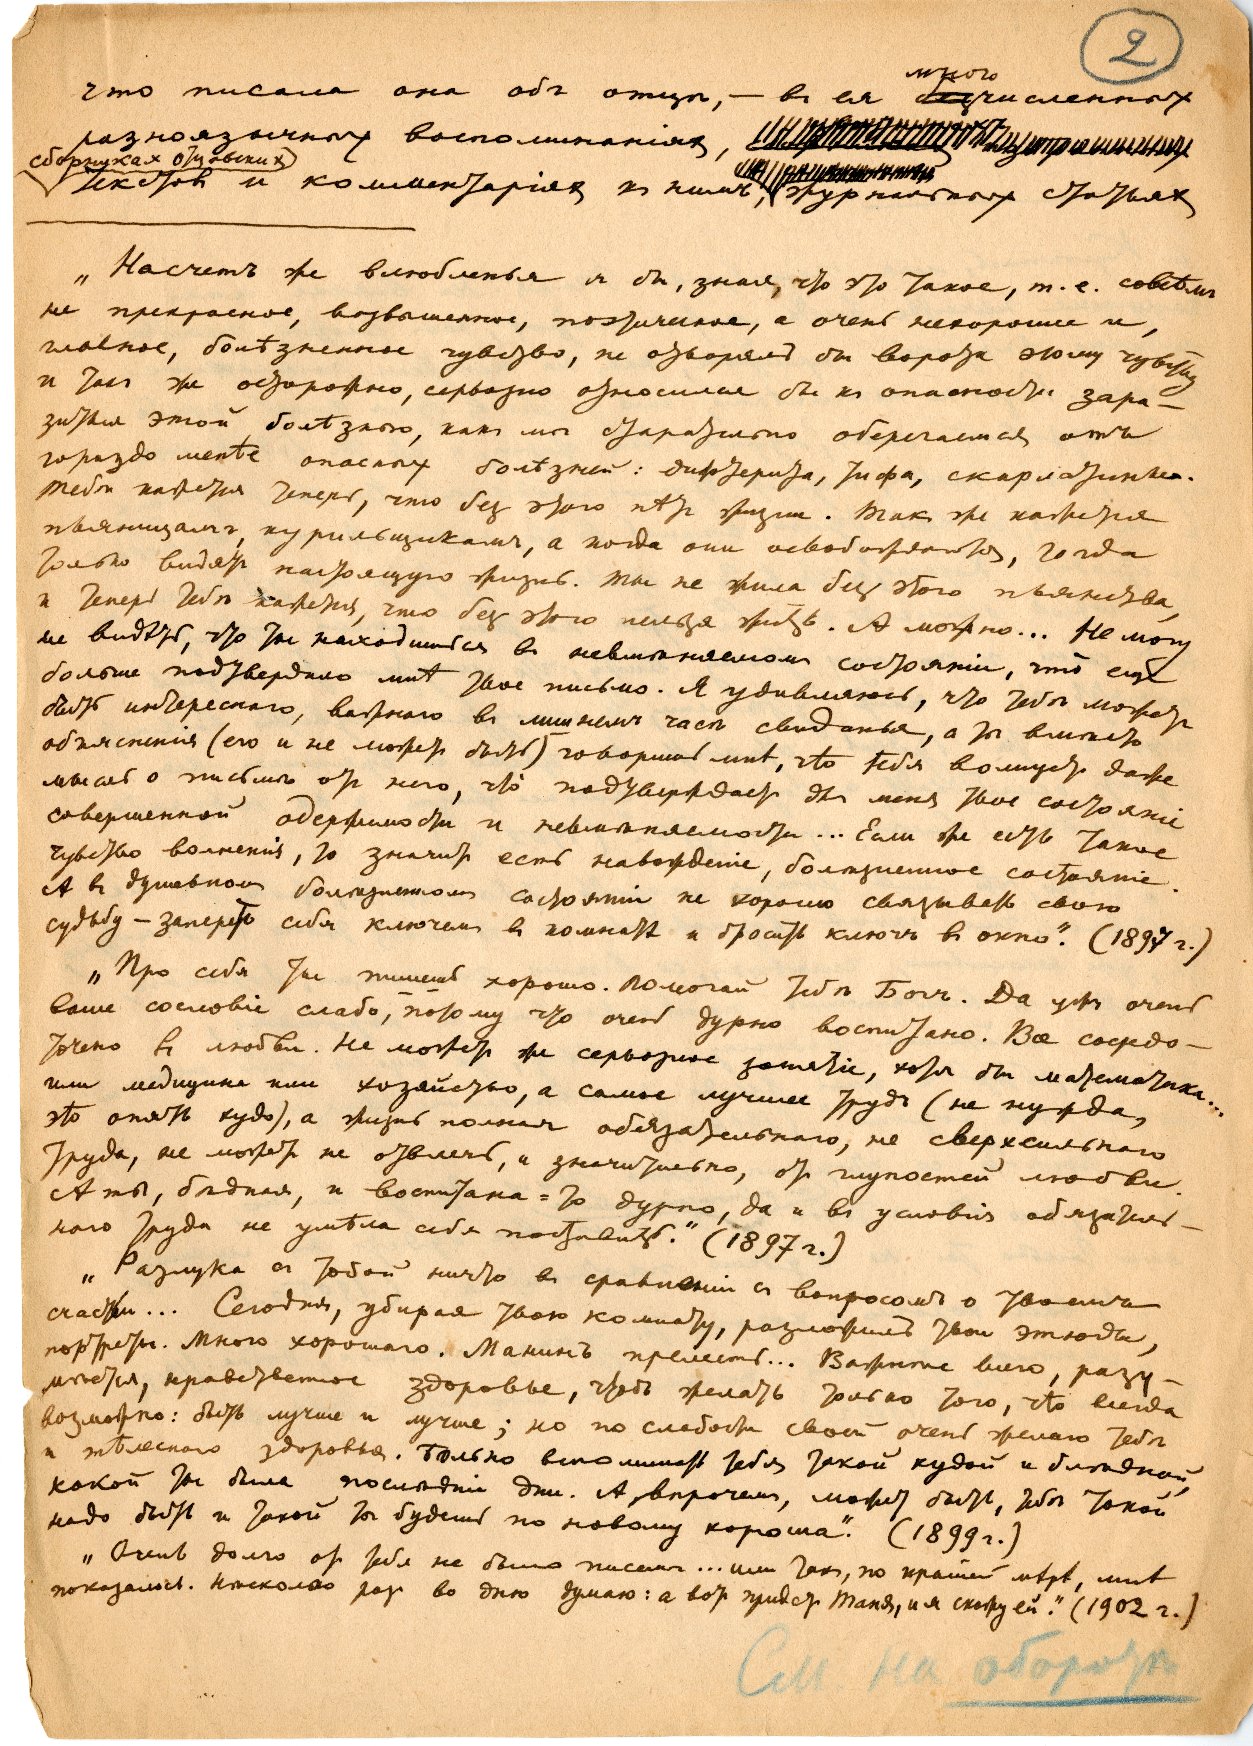 2
что писала она объ отцѣ, — в ея многочисленных
разноязычных воспоминаніях,
сборниках отцовских
текстов и комментаріях к ним, журнальных статьях
„Насчетъ же влюбленья я бы, зная, что это такое, т. е. совсѣмъ
не прекрасное, возвышенное, поэтическое, а очень нехорошее и,
главное, болѣзненное чувство, не отворялъ бы ворота этому чувству
и так же осторожно, серьезно относился бы к опасности зара-
зиться этой болѣзнью, как мы старательно оберегаемся отъ
гораздо менѣе опасных болѣзней: дифтерита, тифа, скарлатины.
Тебѣ кажется теперь, что без этого нѣт жизни. Так же кажется
пьяницамъ, курильщикамъ, а когда они освобождаются, тогда
только видят настоящую жизнь. Ты не жила без этого пьянства,
и теперь тебѣ кажется, что без этого нельзя жить. А можно... Не могу
не видѣть, что ты находишься в невмѣняемом состояніи, что еще
больше подтвердило мнѣ твое письмо. Я удивляюсь, что тебѣ может
быть интереснаго, важнаго в лишнемъ часѣ свиданья, а ты вмѣсто
объясненія (его и не может быть) говоришь мнѣ, что тебя волнует даже
мысль о письмѣ от него, что подтверждает для меня твое состояніе
совершенной одержимости и невмѣняемости... Если же есть такое
чувство волненія, то значит есть навожденіе, болѣзненное состояніе.
А в душевном болѣзненном состояніи не хорошо связывать свою
судьбу — запереть себя ключем в комнатѣ и бросить ключъ в окно". (1897 г.)
„Про себя ты пишешь хорошо. Помогай тебѣ Богъ. Да уж очень
ваше сословіе слабо, потому что очень дурно воспитано. Все сосредо-
точено в любви. Не может же серьозное занятіе, хотя бы математика...
или медицина или хозяйство, а самое лучшее труд (не нужда,
это опять худо), а жизнь полная обязательнаго, не сверхсильнаго
труда, не может не отвлечь, и значительно, от глупостей любви.
А ты, бѣдная, и воспитана-то дурно, да и в условія обязатель-
наго труда не умѣла себя поставить." (1897 г.)
„Разлука с тобой ничто в сравненіи с вопросомъ о твоемъ
счастьи... Сегодня, убирая твою комнату, разложилъ твои этюды,
портреты. Много хорошаго. Манинъ прелесть... Важнѣе всего, разу-
мѣется, нравственное здоровье, чтоб желать только того, что всегда
возможно: быть лучше и лучше; но по слабости своей очень желаю тебѣ
и тѣлеснаго здоровья. Больно вспоминать тебя такой худой и блѣдной,
какой ты была послѣдніе дни. А, впрочем, может быть, тебѣ такой
надо быть и такой ты будешь по новому хороша". (1899 г.)
„Очень долго от тебя не было писем... или так, по крайней мѣрѣ, мнѣ
показалось. Нѣсколько раз во дню думаю: а вот придет Таня, и я скажу ей." (1902 г.)
См. на оборотѣ